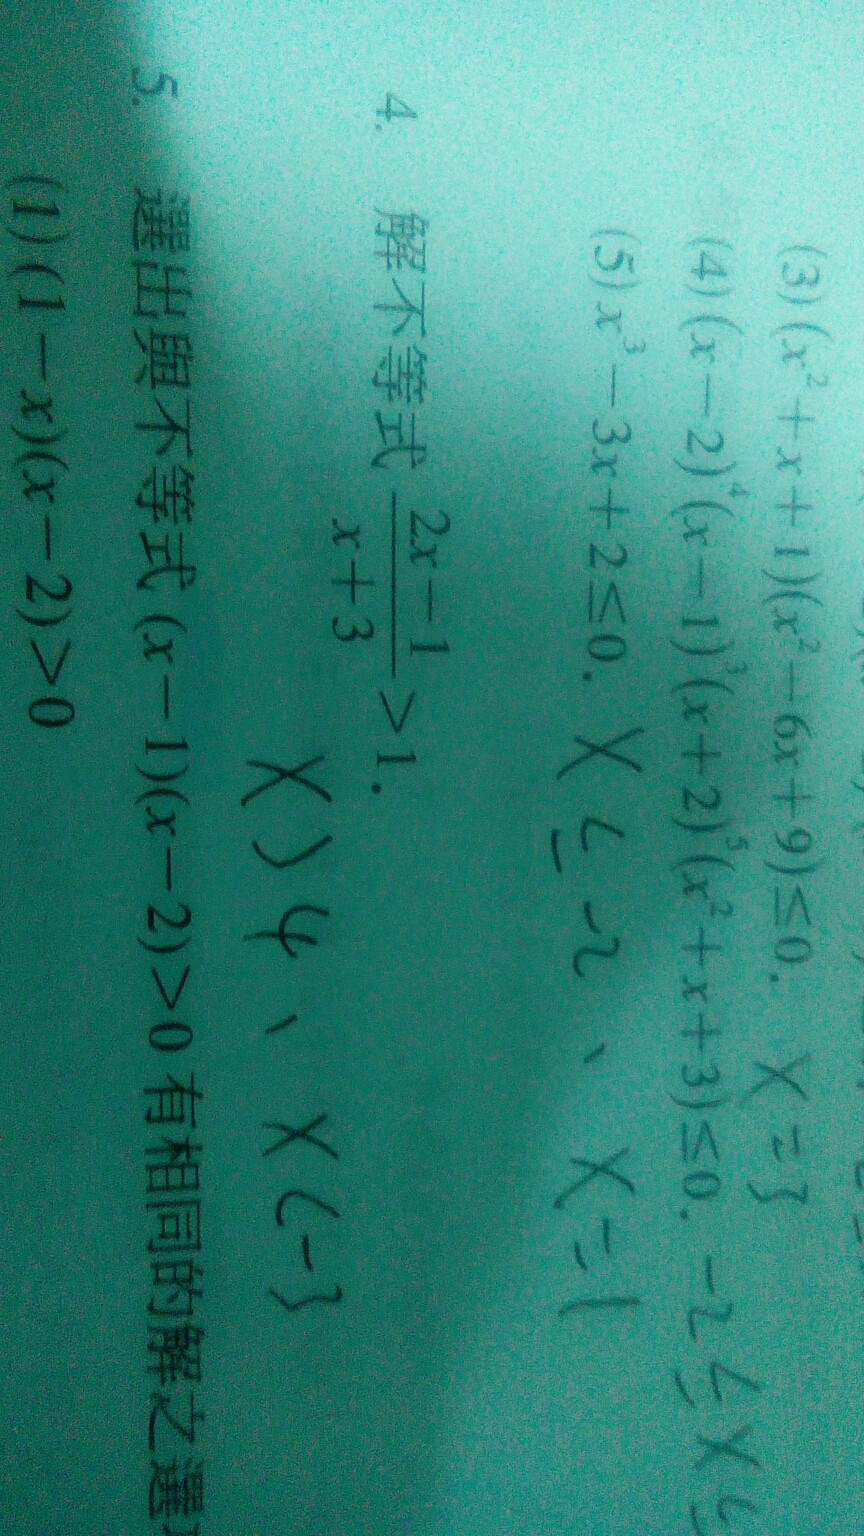 (3) (x²+x+1)(x²−6x+9)≤0. X=3
(4) (x−2)⁴(x−1)³(x+2)⁵(x²+x+3)≤0. −2≤X≤
(5) x³−3x+2≤0. X≤−2、X=1
4. 解不等式 \frac{2x−1}{x+3}>1.
X>4、X<−3
5. 選出與不等式 (x−1)(x−2)>0 有相同的解之選
(1) (1−x)(x−2)>0